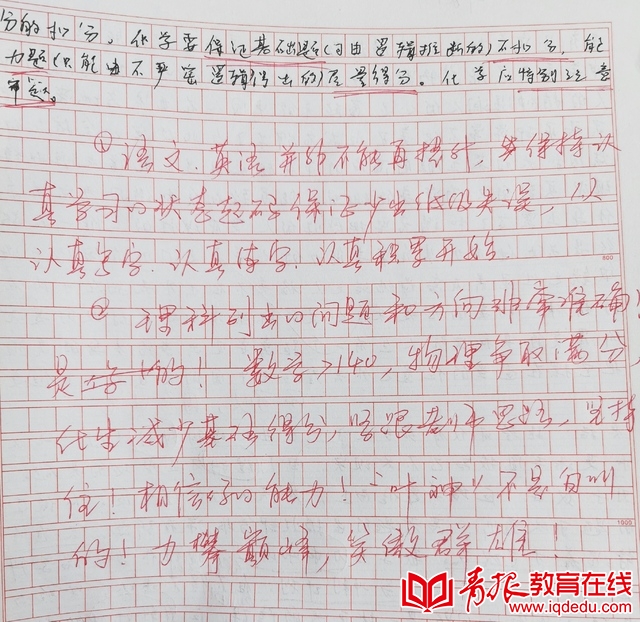 分的扣分。化学要保证基础题(可由逻辑推断的)不扣分,能
力题(只能由不严密逻辑得出的)尽量得分。化学应特别注意
审题。
① 语文、英语并非不能再提升,要保持认
真学习的状态起码保证少出低级失误,从
认真写字、认真练字、认真积累开始.
② 理科列出的问题和方向非常准确,
是 的!数学>140,物理争取满分,
化学减少基础得分,紧跟老师思路,坚持
住!相信你的能力!“叶神”不是白叫
的!力攀巅峰,笑傲群雄!
800
1000
青报教育在线
www.iqdedu.com